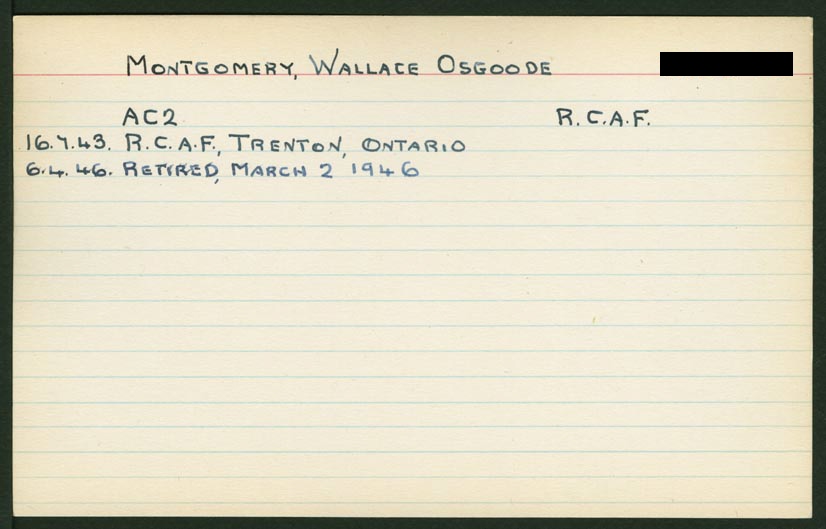 MONTGOMERY, WALLACE OSGOODE
AC2 R.C.A.F.
16.7.43. R.C.A.F., TRENTON, ONTARIO
6.4.46. RETIRED, MARCH 2 1946